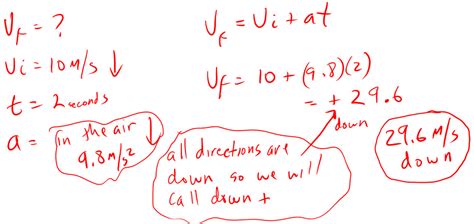 V_f = ?
V_i = 10 m/s ↓
t = 2 seconds
a = in the air
9.8 m/s² ↓
V_f = V_i + at
V_f = 10 + (9.8)(2)
= + 29.6
down
all directions are
down so we will
call down +
29.6 m/s
down